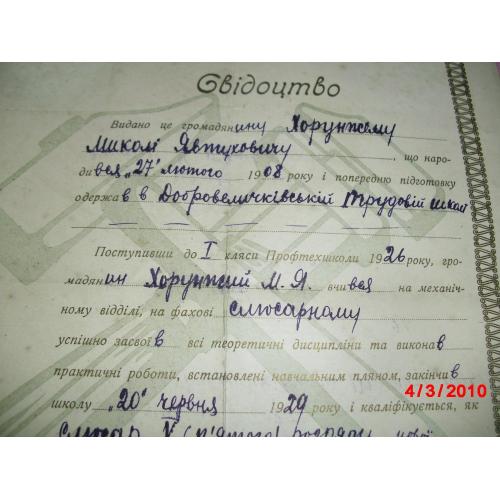 Свідоцтво
Видано це громадянину Хорунжему
Миколі Явтуховичу, що наро-
дився „27" лютого 1908 року і попередню підготовку
одержав в Добровеличківській трудовій школі
Поступивши до I кляси Профтехшколи 1926 року, гро-
мадянин Хорунжий М. Я. вчився на механіч-
ному відділі, на фахові слюсарному
успішно засвоїв всі теоретичні дисципліни та виконав
практичні роботи, встановлені навчальним пляном, закінчив
4/3/2010
школу „20" червня 1929 року і кваліфікується, як
Слюсар V (п'ятого) розряду